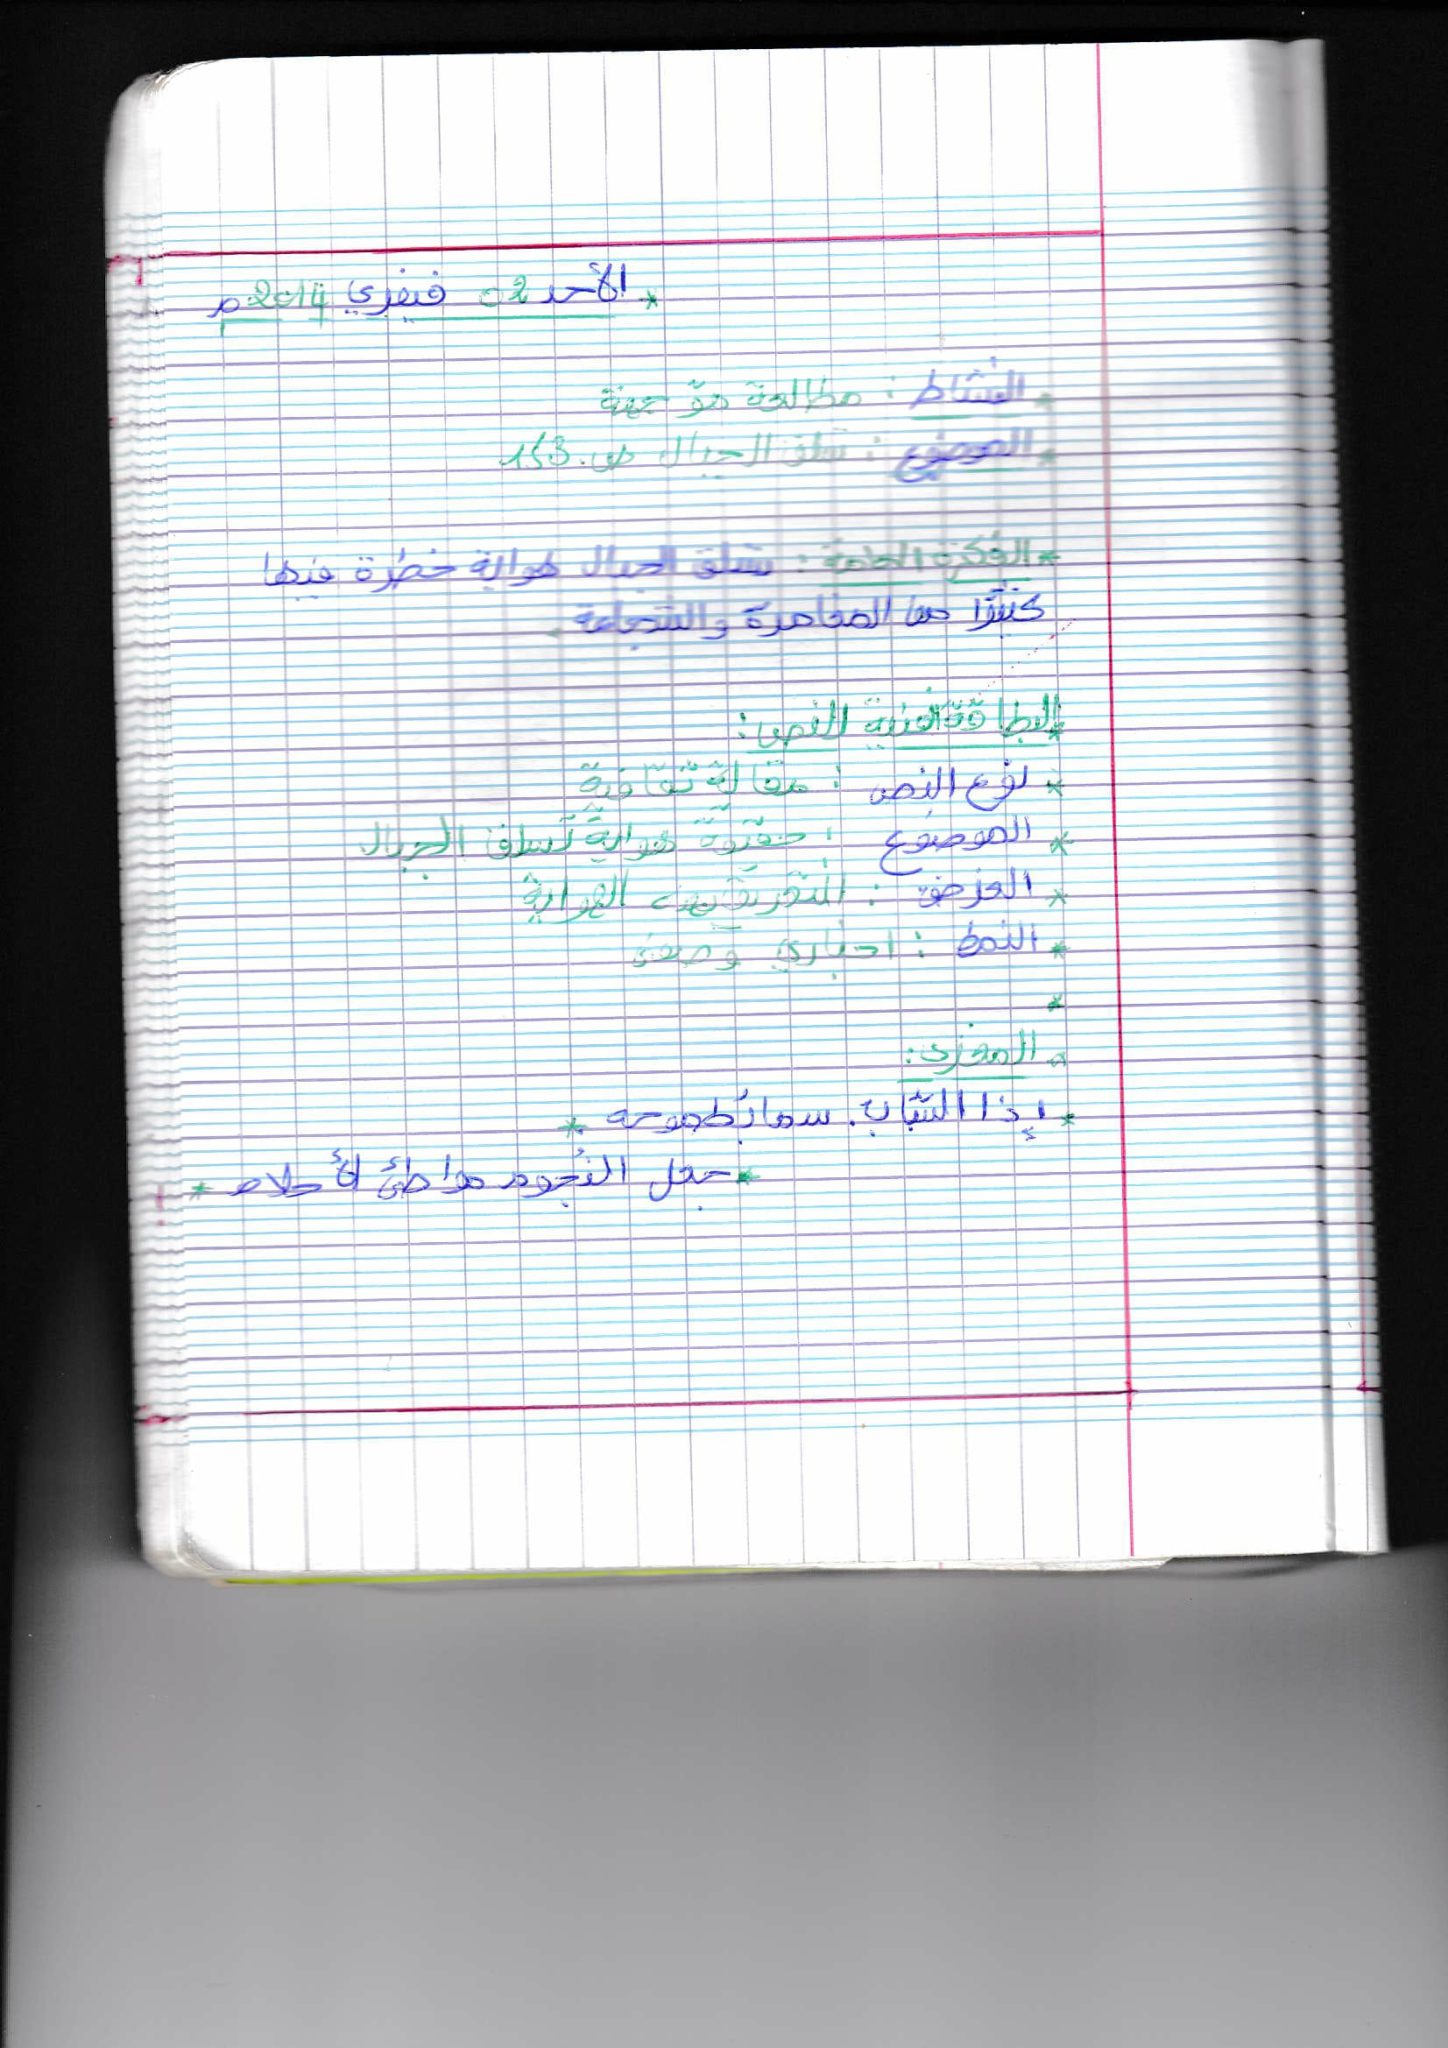 * الأحد 02 فيفري 2014م
النشاط : مطالعة موجهة
الموضوع : تسلق الجبال ص.153
* الفكرة العامة : تسلق الجبال هواية خطرة فيها
كثيرًا من المغامرة والشجاعة.
البطاقة الفنية النص :
* نوع النص : مقالة ثقافية
* الموضوع : هواية تسلق الجبال
* الغرض : الهواية
* النمط : اخباري وصفي
*
المغزى :
* إذا الشباب سما بطموحه *
* جعل النجوم مواطئ الأحلام *